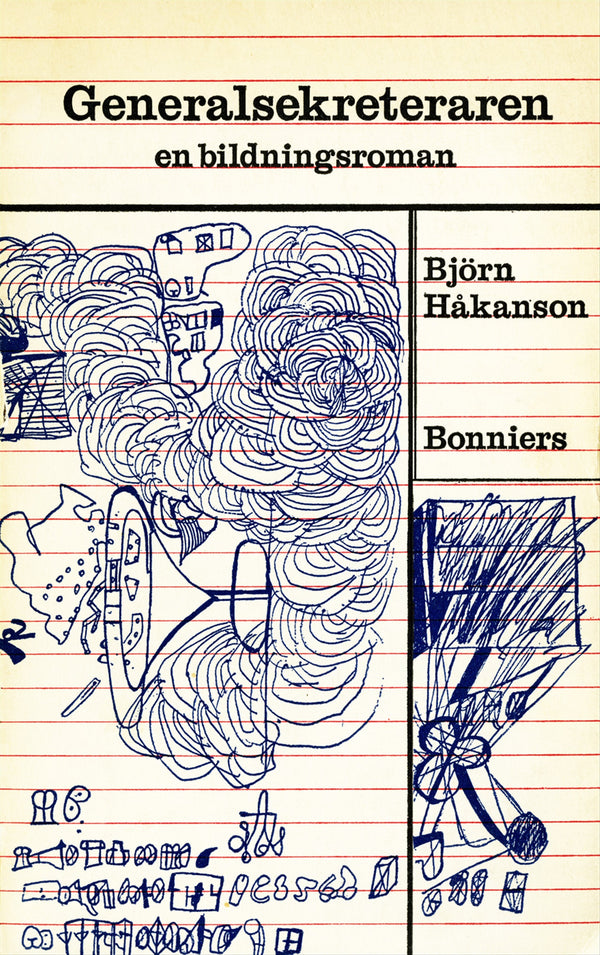 Generalsekreteraren
en bildningsroman
Björn
Håkanson
Bonniers